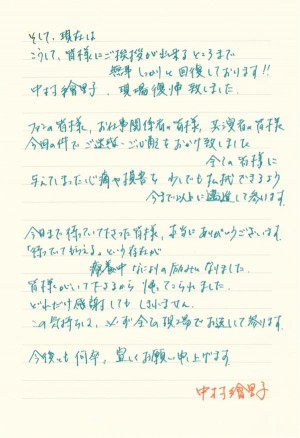 そして、現在は
こうして、皆様にご挨拶が出来るところまで
無事しっかりと回復しております!!
中村繪里子、現場復帰致しました。
ファンの皆様、お仕事関係者の皆様、共演者の皆様
今回の件でご迷惑・ご心配をおかけ致しました
全ての皆様に
与えてしまった心痛や損害を少しでも払拭できるよう
今まで以上に邁進して参ります。
今日まで待っていて下さった皆様、本当にありがとうございます。
「待っててもらえる」という存在が
療養中なによりの励みになりました。
皆様がいて下さるから帰ってこられました。
どれだけ感謝してもしきれません。
この気持ちは、必ず全て現場でお返しして参ります。
今後とも何卒、宜しくお願い申し上げます。
中村繪里子